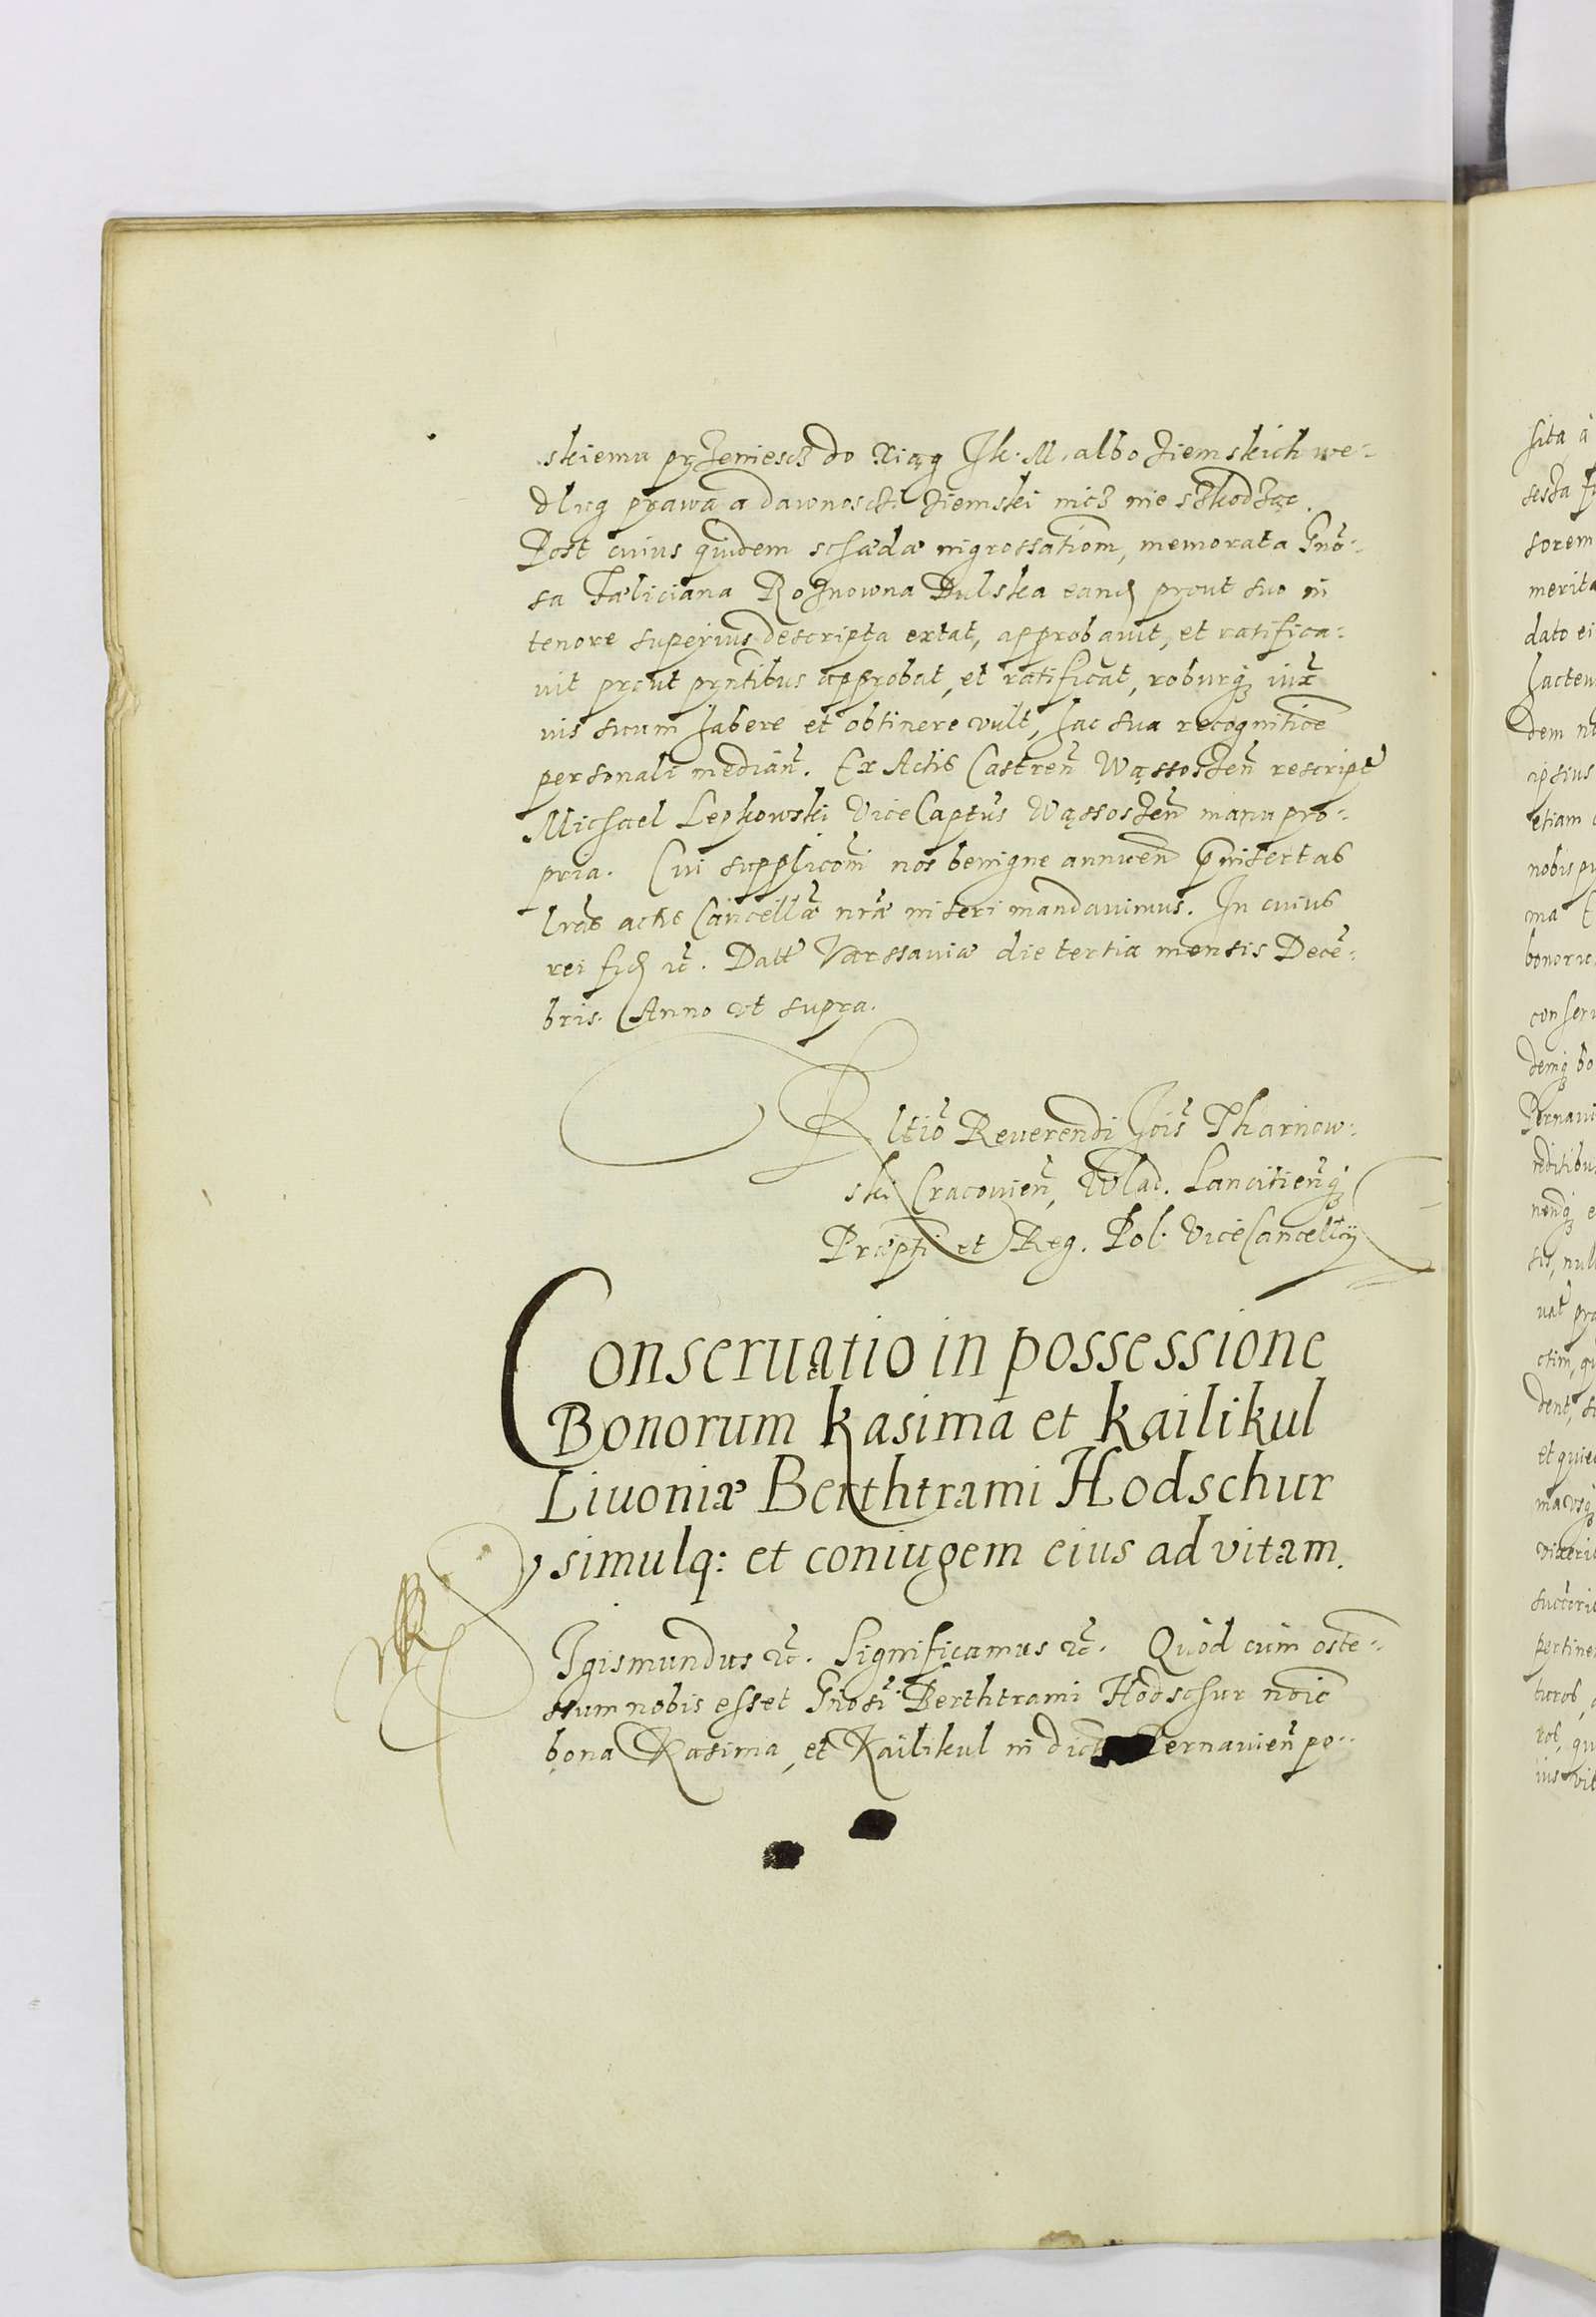 skiemu przeniescz do Xiąg Jk. M. albo ziemskich we-
dług prawa a dawnosczi ziemski nicz nie szkodząc.
Post cuius quidem schædæ ingrossationem, memorata Gnõ-
sa Fæliciana Roznowna Dulska eand prout suo in
tenore superius descripta extat, approbauit, et ratifica-
uit prout pñtibus approbat, et ratificat, roburq iux
uis suum habere et obtinere vult, hac sua recognitiõe
personali median̄. Ex Actis Castren̄ Wąssoszen̄ rescript
Michael Lepkowski ViceCaptūs Wąssoszen̄ manu pro-
pria. Cui supplicõni nos benigne annuen̄ p̃insertas
lrãs actis Cancellæ nr̃æ inseri mandauimus. In cuius
rei fid ec̃. Datt Varssauiæ die tertia mensis Decē-
bris. Anno vt supra.
Rltio Reuerendi Jois Tharnow-
ski Cracouien̄, Wlad. Lanciien̄q
Præpti et Reg. Pol. ViceCancellrij
Conseruatio in possessione
Bonorum Kasima et Kailikul
Liuoniæ Berthtrami Hodschur
simulq: et coniugem eius ad vitam.
Igismundus ec̃. Significamus ec̃. Quòd cum oste-
ssum nobis esset Gnosi Berthtrami Hodschur noie
bona Kasima, et Kailikul in Pernauien̄ po-
sita à
sorem
merita
dato ei
hacten
dem
ipsius
etiam
ma
demq bo
Pernaui
dent,